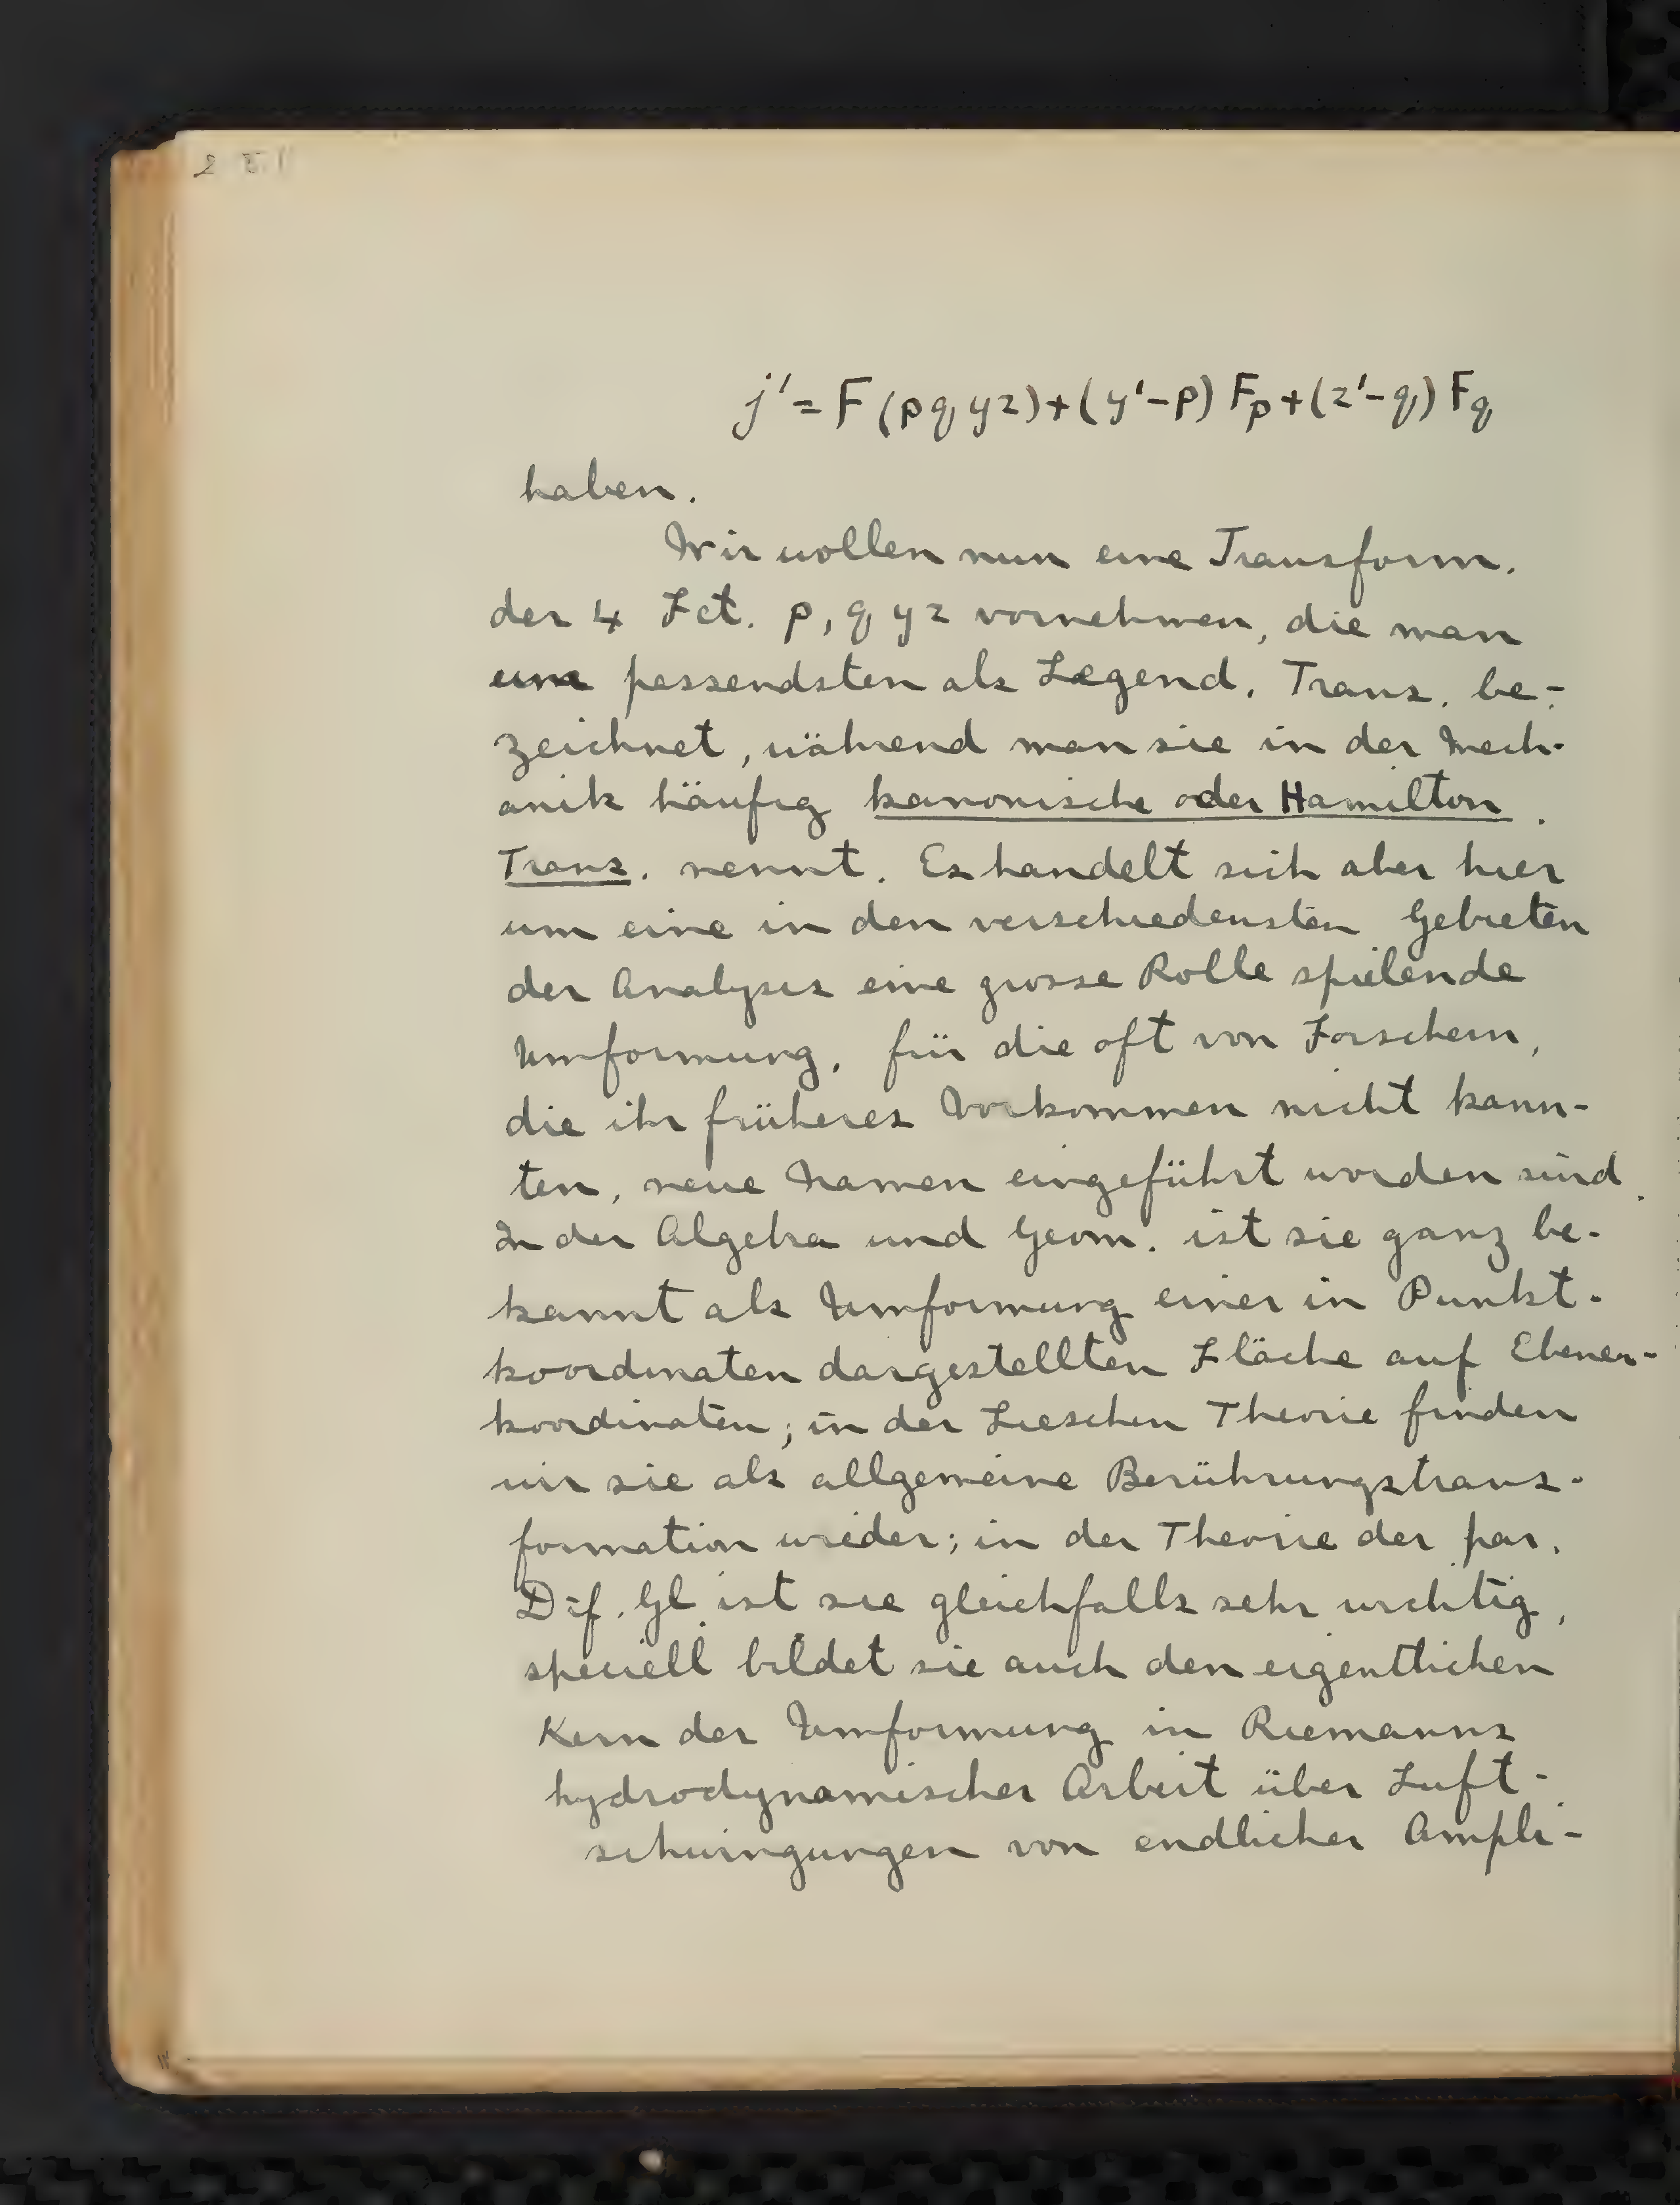 j' = F (p q y z) + (y' - p) Fp + (z' - q) Fq
haben.
Wir wollen nun eine Transform.
der 4 Fct. p, q y z vornehmen, die man
am passendsten als Legend. Trans. be-
zeichnet, während man sie in der Mech-
anik häufig kanonische oder Hamilton.
Trans. nennt. Es handelt sich aber hier
um eine in den verschiedensten Gebieten
der Analysis eine grosse Rolle spielende
Umformung, für die oft von Forschern,
die ihr früheres Vorkommen nicht kann-
ten, neue Namen eingeführt worden sind.
In der Algebra und Geom. ist sie ganz be-
kannt als Umformung einer in Punkt-
koordinaten dargestellten Fläche auf Ebenen-
koordinaten; in der Lieschen Theorie finden
wir sie als allgemeine Berührungstrans-
formation wieder; in der Theorie der par.
Dif. Gl. ist sie gleichfalls sehr wichtig,
speciell bildet sie auch den eigentlichen
Kern der Umformung in Riemanns
hydrodynamischer Arbeit über Luft-
schwingungen von endlicher Ampli-